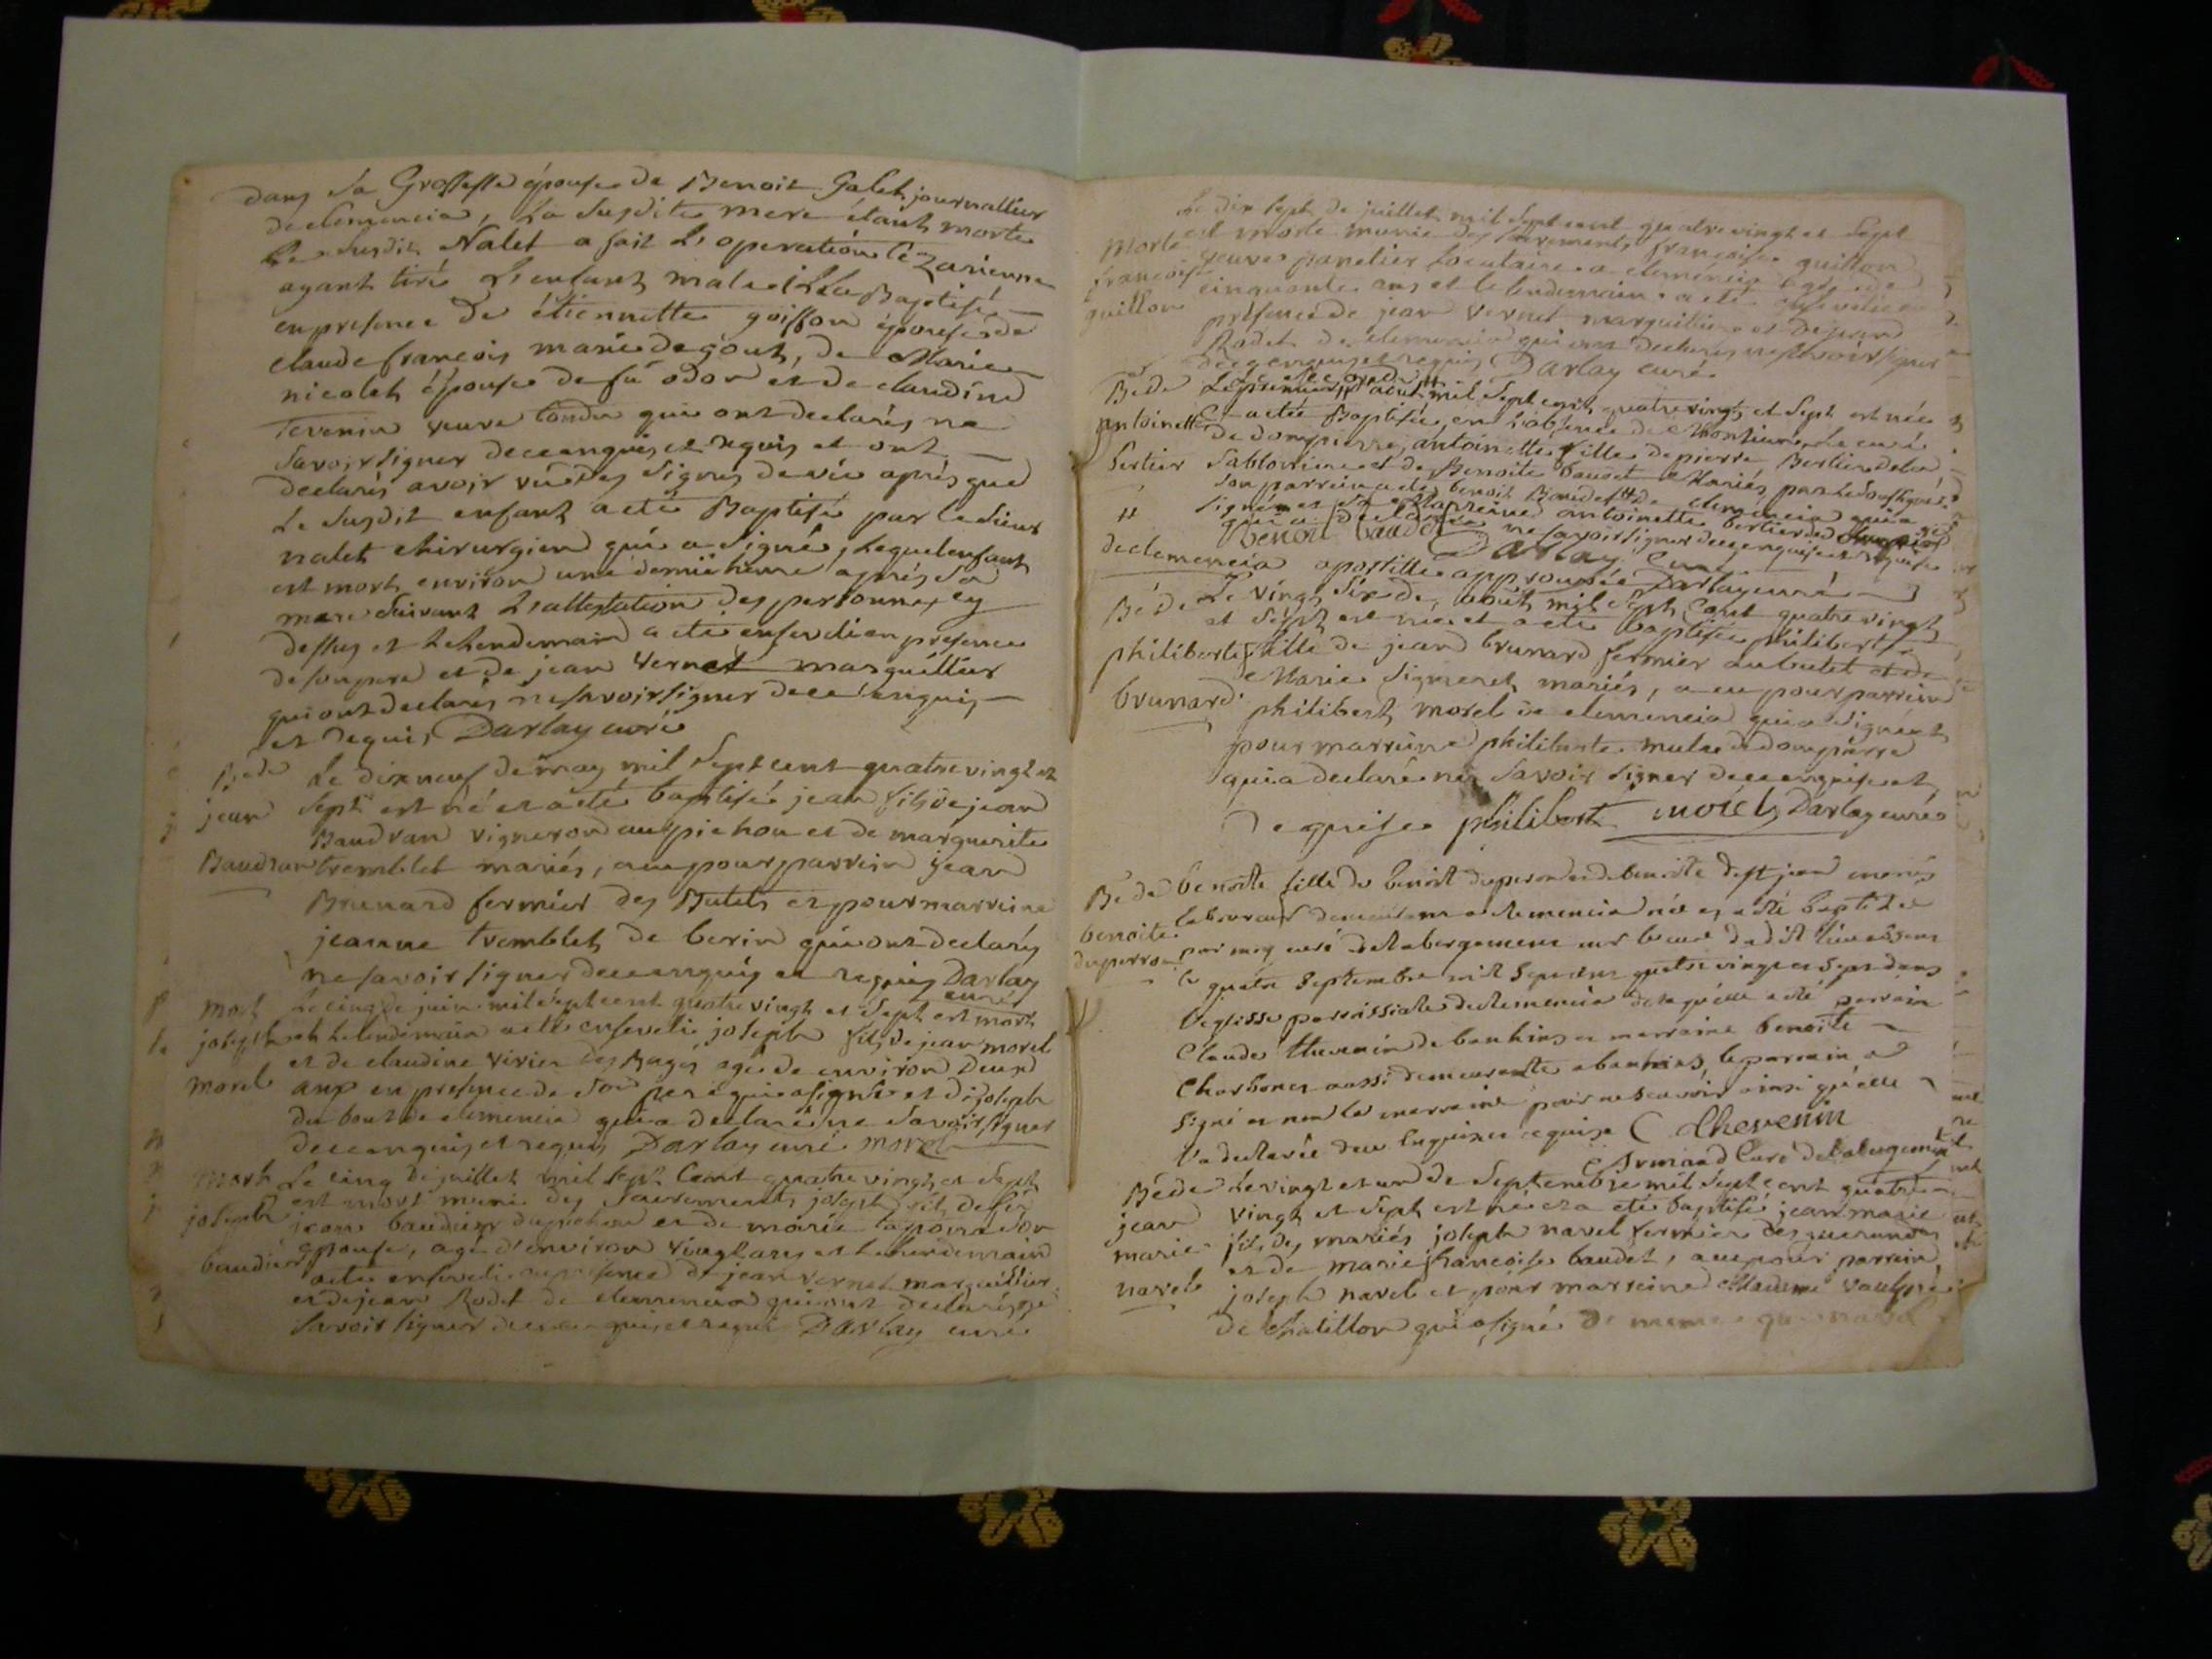 dans sa Grossesse épouse de Benoit Galet journallier
de clemencia, La susdite mere étant morte
Le susdit Nalet a fait L'operation cezarienne
ayant tiré L'enfant male il L'a Baptisé
en presence de étiennette goisson épouse de
claude francois marie degout, de Marie
nicolet épouse de fû odor et de claudine
Tevenin veuve qui ont declarés ne
savoir signer de ce enquis et requis et ont
declarés avoir vû des signes de vie aprés que
Le susdit enfant a eté Baptisé par le sieur
nalet chirurgien qui a signé, Lequel enfant
est mort environ une demie heure aprés sa
mere suivant L'attestation des personnes cy
dessus et Le Lendemain a ete enseveli en presence
de son pere et de jean Vernet marguillier
qui ont declarés ne savoir signer de ce enquis
et requis Darlay curé
B. de Le dix neuf de may mil sept cent quatre vingt et
jean sept est né et a eté baptisé jean fils de jean
Baudran vigneron au pichou et de marguerite
Baudran tremblet mariés, a eu pour parrein jean
Brunard fermier des Butets et pour marreine
jeanne tremblet de berin qui ont declarés
ne savoir signer de ce enquis et requis Darlay
curé
mort Le cinq de juin mil sept cent quatre vingt et sept est mort
joseph et Le Lendemain a eté enseveli joseph fils de jean morel
et de claudine vivier des agé de environ deux
morel ans en presence de son pere qui a signé et de joseph
du bout de clemencia qui a declaré ne savoir signer
de ce enquis et requis Darlay curé morel
mort Le cinq de juillet mil sept Cent quatre vingt et sept
joseph est mort muni des sacrements joseph fils de fû
jean baudier du pichou et de marie son
baudier epouse, agé d'environ vingt ans et Le Lendemain
a eté enseveli en presence de jean vernet marguillier
et de jean Rodet de clemencia qui ont declarés ne
savoir signer de ce enquis et requis Darlay curé
Le dix sept de juillet mil sept cent quatre vingt et sept
morte est morte munie des sacrements francoise guillon
francoise veuve panetier Locataire a clemencia agée de
guillon cinquante ans et le lendemain a eté ensevelie en
presence de jean vernet marguillier et de jean
Rodet de clemencia qui ont declarés ne savoir signer
de ce enquis et requis Darlay curé
B. de Le premier d'août mil sept cent quatre vingt et sept est née
antoinette et a eté Baptisée en L'absence de Monsieur Le curé
de dompierre antoinette fille de pierre Bertier de la
bertier sabloniere et de Benoite baudet Mariés par Le soussigné
son parrein a eté benoit Baudet de clemencia qui a
signé et sa Marreine antoinette bertier
qui a declaré ne savoir signer de ce enquise et requise
benoit baudet Darlay Curé
de clemencia apostille approuvée Darlay curé
B. de Le vingt six de, août mil sept Cent quatre vingt
et sept est née et a eté baptisée philiberte
philiberte fille de jean brunard fermier au butet et de
Marie signeret mariés, a eu pour parrein
brunard philibert morel de clemencia qui a signé et
pour marreine philiberte de dompierre
qui a declaré ne savoir signer de ce enquise et
requise philibert morel Darlay curé
B. de benoite fille de benoit duperron et de benoite de st jean mariés
laboureur demeurans a clemencia née et a été baptisée
benoite par moy curé de labergement
duperron le quatre septembre mil sept cent quatre vingt et sept dans
l'eglise parroissiale de clemencia de laquelle a été parrain
Claude thevenin de banhins et marraine benoite
Charbonet aussi demeurante a banhins, le parrain a
signé et non la marraine pour ne scavoir ainsi qu'elle
l'a declarée de ce enquise et requise C thevenin
Armand Curé de labergement
B. de Le vingt et un de septembre mil sept cent quatre
jean vingt et sept est né et a eté baptisé jean marie
marie fils des mariés joseph navel fermier des
et de marie francoise baudet, a eu pour parrein
navel joseph navel et pour marreine Madame
de Chatillon qui a signé de meme que navel